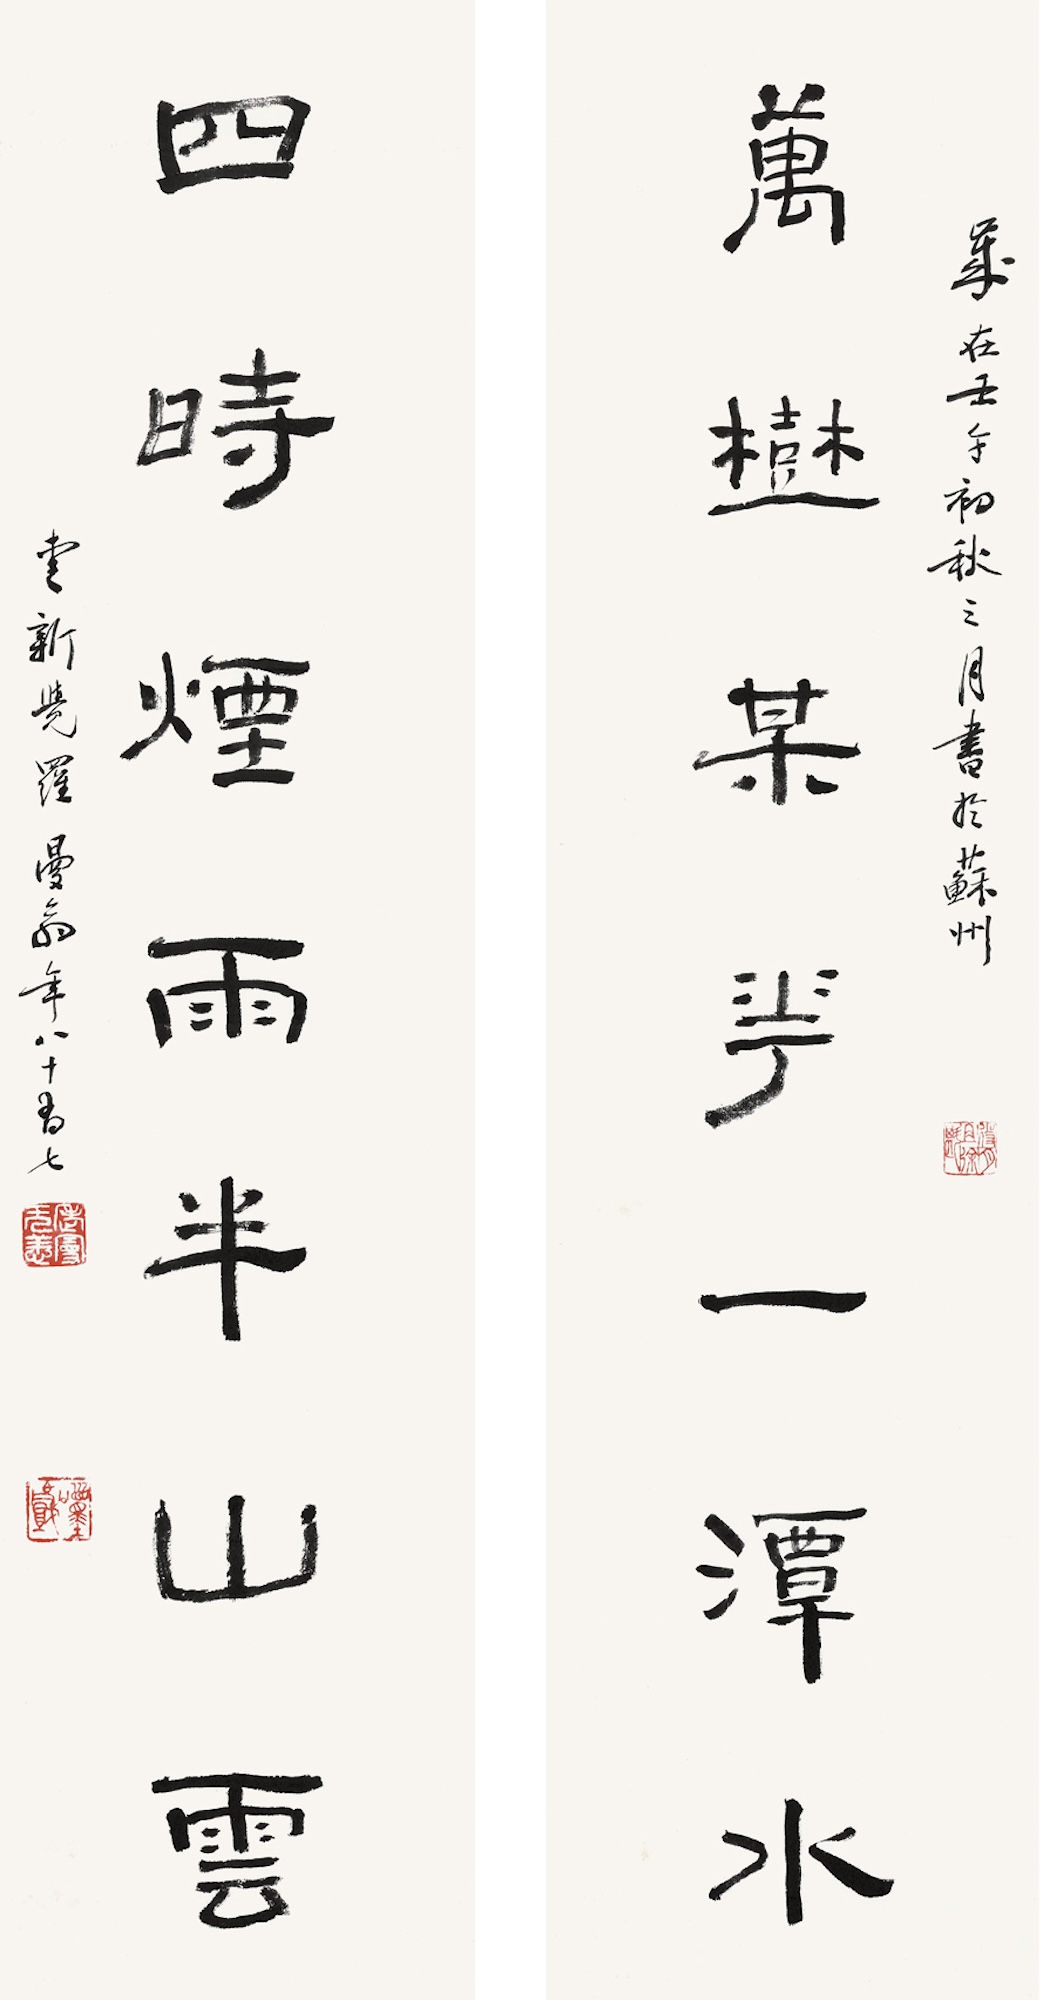 歲在壬午初秋之月書於蘇州
萬樹某華一潭水
四時煙雨半山雲
愛新覺羅曼翁年八十有七